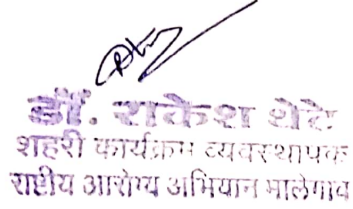 डॉ. राकेश शेटे
शहरी कार्यक्रम व्यवस्थापक
राष्टीय आरोग्य अभियान मालेगाव